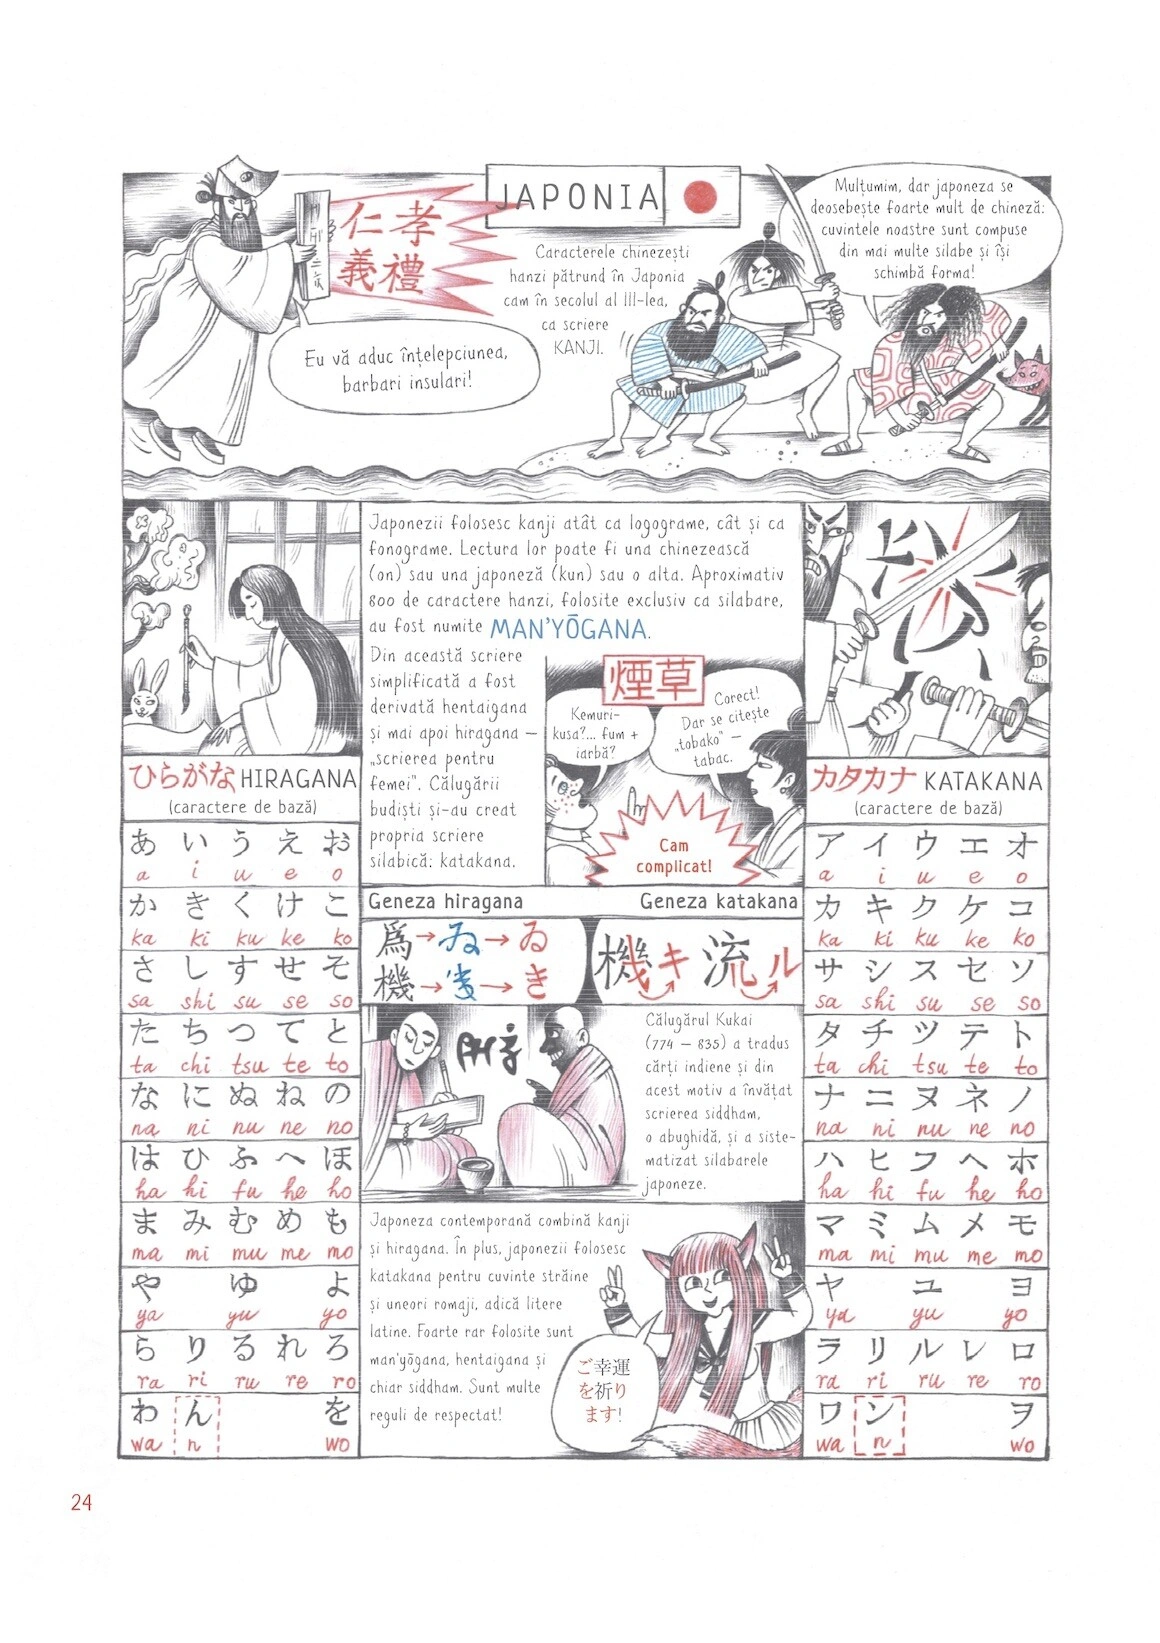 JAPONIA
仁孝
義禮
Caracterele chinezești
hanzi pătrund în Japonia
cam în secolul al III-lea,
ca scriere
KANJI.
Eu vă aduc înțelepciunea,
barbari insulari!
Mulțumim, dar japoneza se
deosebește foarte mult de chineză:
cuvintele noastre sunt compuse
din mai multe silabe și își
schimbă forma!
Japonezii folosesc kanji atât ca logograme, cât și ca
fonograme. Lectura lor poate fi una chinezească
(on) sau una japoneză (kun) sau o alta. Aproximativ
800 de caractere hanzi, folosite exclusiv ca silabare,
au fost numite MAN'YŌGANA.
Din această scriere
simplificată a fost
derivată hentaigana
și mai apoi hiragana –
„scrierea pentru
femei". Călugării
budiști și-au creat
propria scriere
silabică: katakana.
煙草
Kemuri-
kusa?... fum +
iarbă?
Corect!
Dar se citește
„tobako" –
tabac.
Cam
complicat!
ひらがな HIRAGANA
(caractere de bază)
あ い う え お
a i u e o
か き く け こ
ka ki ku ke ko
さ し す せ そ
sa shi su se so
た ち つ て と
ta chi tsu te to
な に ぬ ね の
na ni nu ne no
は ひ ふ へ ほ
ha hi fu he ho
ま み む め も
ma mi mu me mo
や ゆ よ
ya yu yo
ら り る れ ろ
ra ri ru re ro
わ ん を
wa n wo
Geneza hiragana
爲→ゐ→ゐ
機→→き
Geneza katakana
機キ 流ル
Călugărul Kukai
(774 – 835) a tradus
cărți indiene și din
acest motiv a învățat
scrierea siddham,
o abughidă, și a siste-
matizat silabarele
japoneze.
Japoneza contemporană combină kanji
și hiragana. În plus, japonezii folosesc
katakana pentru cuvinte străine
și uneori romaji, adică litere
latine. Foarte rar folosite sunt
man'yōgana, hentaigana și
chiar siddham. Sunt multe
reguli de respectat!
ご幸運
を祈り
ます!
カタカナ KATAKANA
(caractere de bază)
ア イ ウ エ オ
a i u e o
カ キ ク ケ コ
ka ki ku ke ko
サ シ ス セ ソ
sa shi su se so
タ チ ツ テ ト
ta chi tsu te to
ナ ニ ヌ ネ ノ
na ni nu ne no
ハ ヒ フ ヘ ホ
ha hi fu he ho
マ ミ ム メ モ
ma mi mu me mo
ヤ ユ ヨ
ya yu yo
ラ リ ル レ ロ
ra ri ru re ro
ワ ン ヲ
wa n wo
24